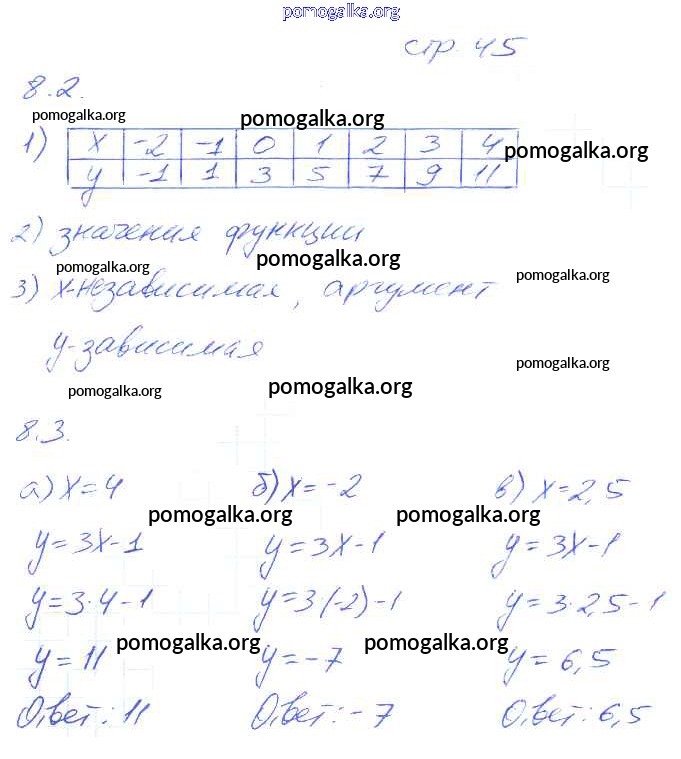 pomogalka.org
стр. 45
8.2.
pomogalka.org pomogalka.org
1) x -2 -1 0 1 2 3 4
pomogalka.org
y -1 1 3 5 7 9 11
2) значения функции
pomogalka.org
pomogalka.org pomogalka.org
3) x-независимая, аргумент
y-зависимая
pomogalka.org
pomogalka.org pomogalka.org
8.3.
а) x=4 б) x=-2 в) x=2,5
pomogalka.org pomogalka.org
y=3x-1 y=3x-1 y=3x-1
y=3·4-1 y=3(-2)-1 y=3·2,5-1
pomogalka.org pomogalka.org
y=11 y=-7 y=6,5
Ответ: 11 Ответ: -7 Ответ: 6,5